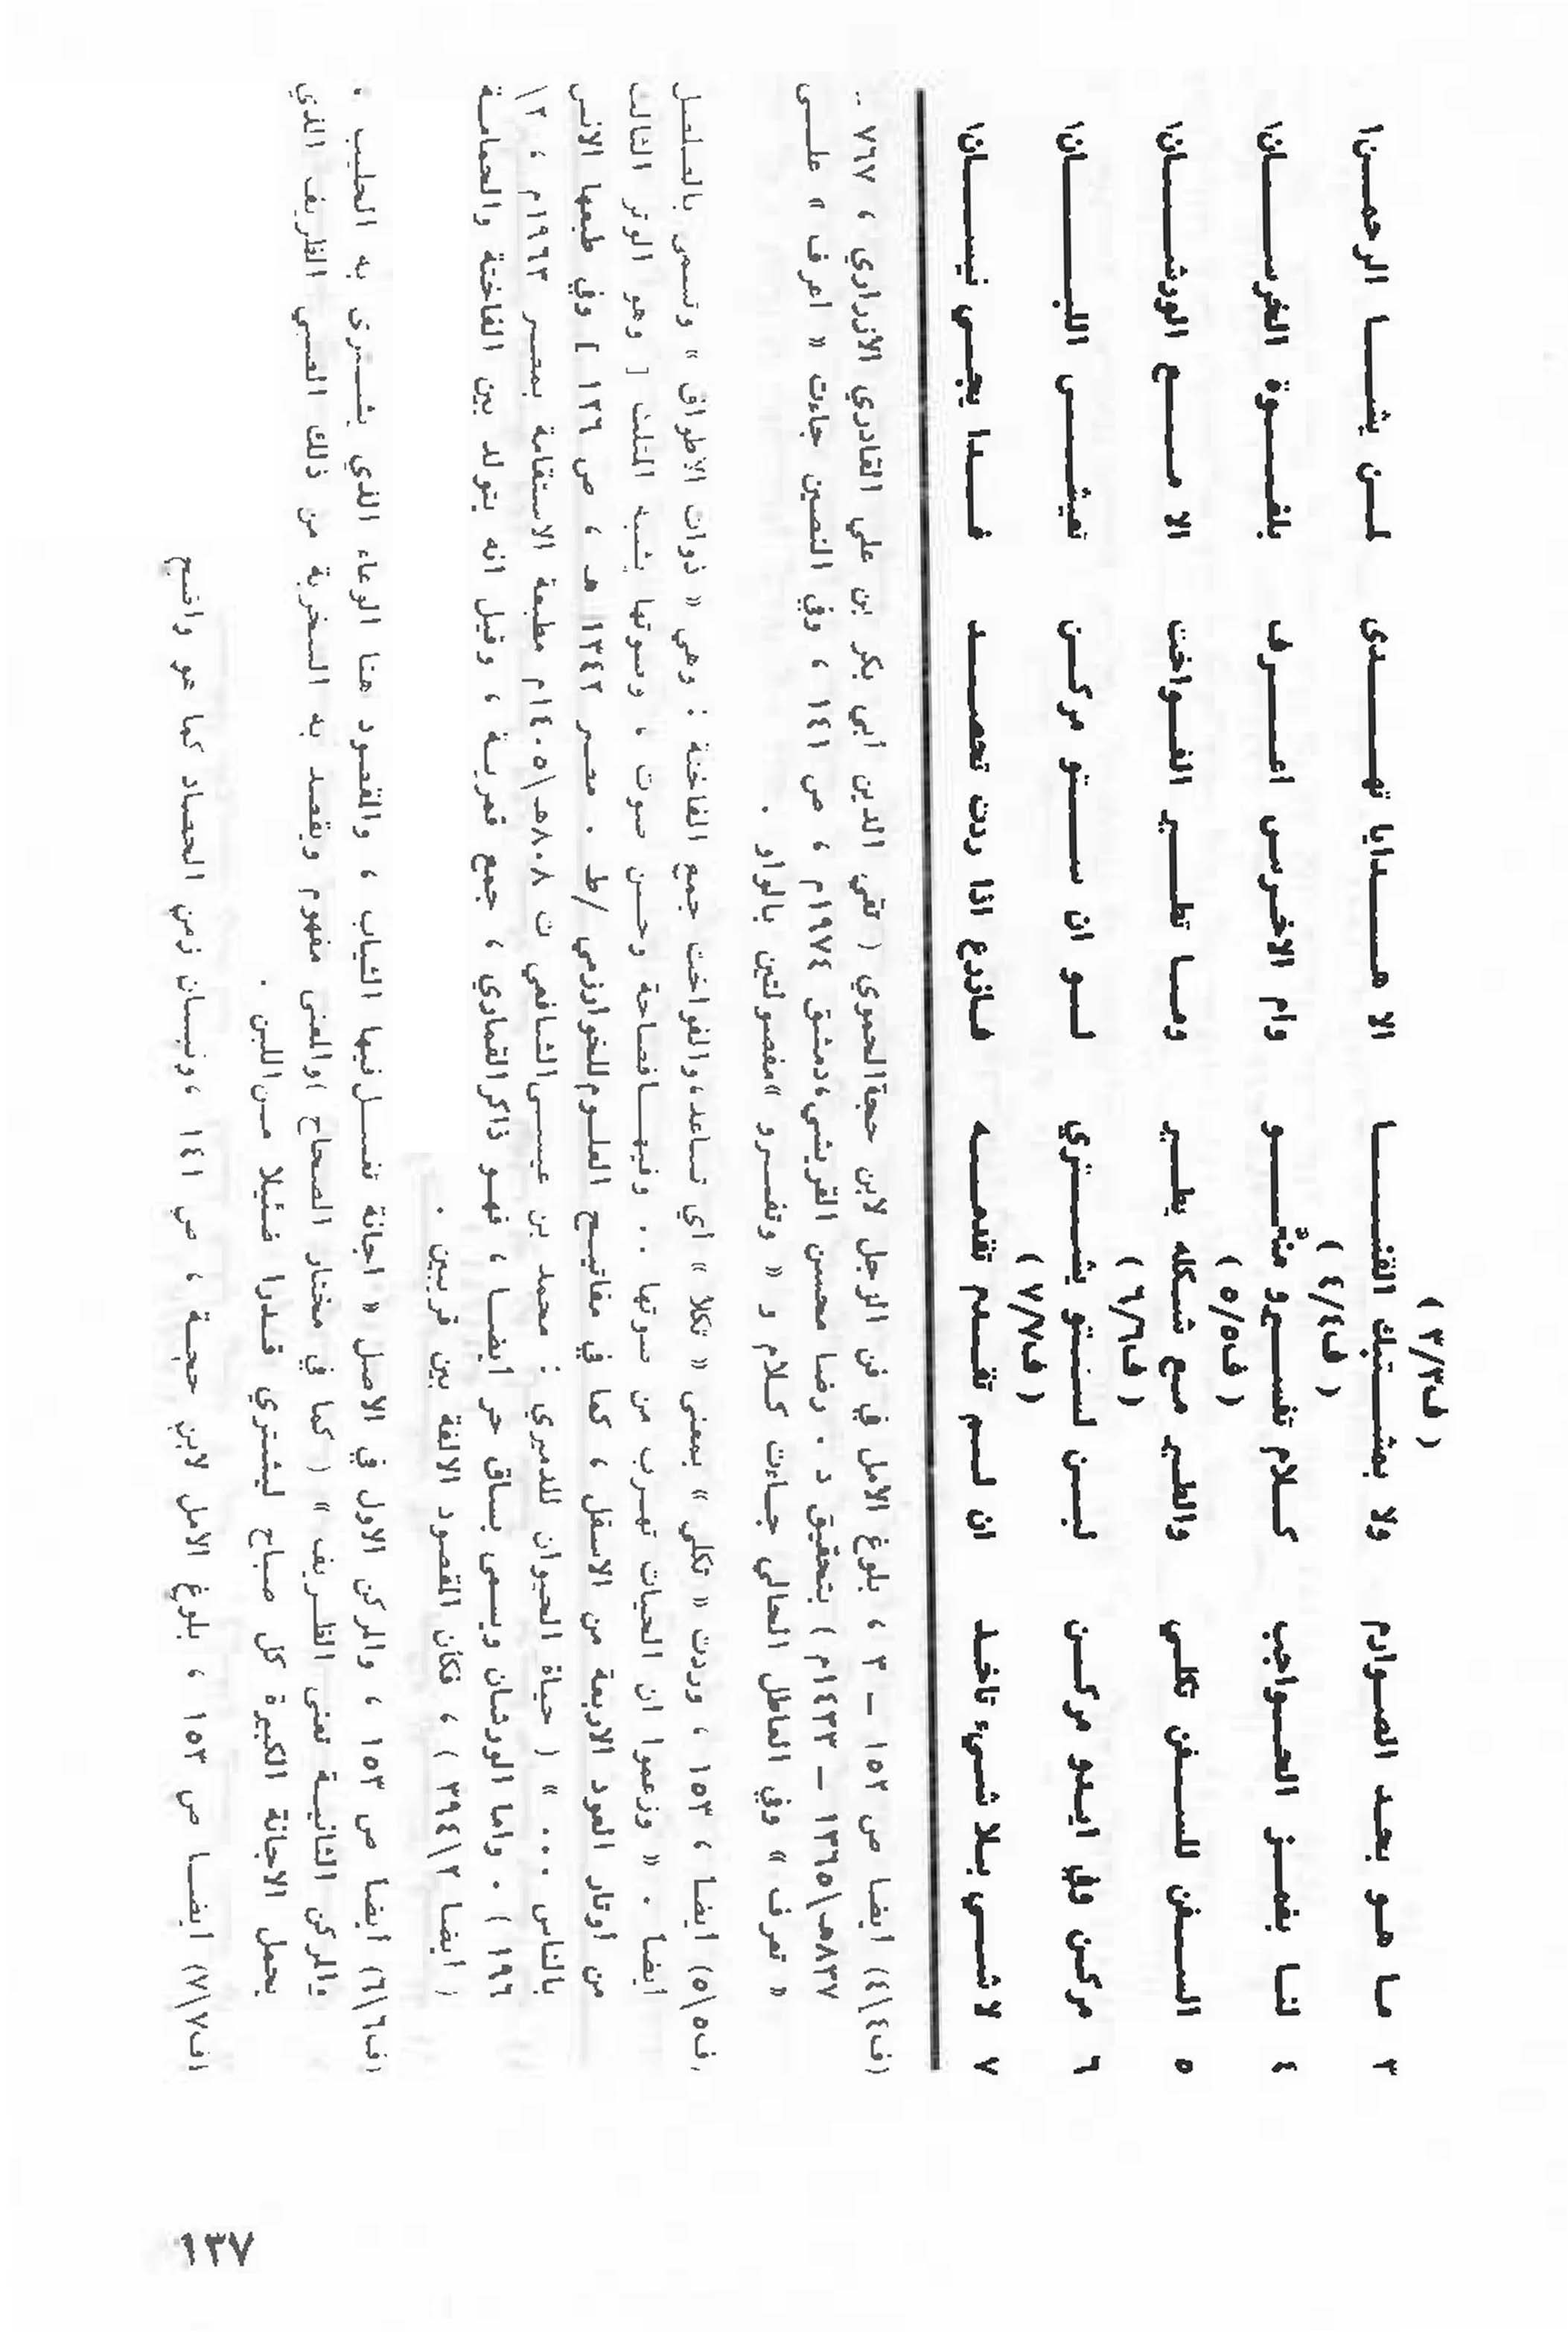 (ف٣/٣)
٣ ما هو بحد الصوارم ولا بمشتبك القنا الا هدايا تهدى لمن يشا الرحمن١
(ف٤/٤)
٤ لنا بغمز الحواجب كلام تفسيرو منو وام الاخرس اعرف بلغوة الخرسان١
(ف٥/٥)
٥ السفن للسفن تكلي والطير مع شكله يطير وما تطير الفواخت الا مع الورشان١
(ف٦/٦)
٦ مركن وفي ايدو مركن لبن لستو يشتري لو ان ستو مركن تعيش اللبان١
(ف٧/٧)
٧ لا شي بلا شيء تاخذ ان لم تقدم تقدمه فازرع اذا ردت تحصد غدا يجي نيسان١
(ف٤\٤) ايضا ص ١٥٢ – ٣ ، بلوغ الأمل في فن الزجل لابن حجة الحموي ( تقي الدين ابي بكر بن علي القادري الأزراري ، ٧٦٧ –
٨٣٧هـ\١٣٦٥ – ١٤٣٣م ) بتحقيق د . رضا محسن القريشي، دمشق ١٩٧٤م ، ص ١٤١ ، وفي النصين جاءت « اعرف » على
« تعرف » وفي العاطل الحالي جاءت كلام و « وتفسرو » مفصولتين بالواو .
(ف٥\٥) ايضا ، ١٥٣ ، وردت « تكلي » بمعنى « تكلا » أي تساعد، والفواخت جمع الفاختة : وهي « ذوات الاطواق » وتسمى بالصلصل
ايضا . « وزعموا ان الحيات تهرب من صوتها .. وفيها فصاحة وحسن صوت ، وصوتها يشبه المثلث [ وهو الوتر الثالث
من اوتار العود الاربعة من الاسفل ، كما في مفاتيح العلوم للخوارزمي /ط . مصر ١٣٤٢ هـ ، ص ١٣٦ ] وفي طبعها الانس
بالناس ... » ( حياة الحيوان للدميري : محمد بن عيسى الشافعي ت ٨٠٨هـ\١٤٠٥م مطبعة الاستقامة بمصر ١٩٦٣م ، ٢\
١٩٦ ) . واما الورشان ويسمى بساق حر ايضا ، فهو ذاكر القماري ، جمع قمرية ، وقيل انه يتولد بين الفاختة والحمامة
( ايضا ٢\٣٩٤ ) ، فكأن المقصود الالفة بين قريبين .
(ف٦\٦) ايضا ص ١٥٣ ، والمركن الاول في الاصل « اجانة تغسل فيها الثياب ، والمقصود هنا الوعاء الذي يشترى به الحليب .
والمركن الثانية تعنى الظريف » ( كما في مختار الصحاح ) والمعنى مفهوم ويقصد به السخرية من ذلك الصبي الظريف الذي
يحمل الاجانة الكبيرة كل صباح ليشتري قدرا ضئيلا من اللبن .
(ف٧\٧) ايضا ص ١٥٣ ، بلوغ الامل لابن حجة ، ص ١٤١ ، ونيسان زمن الحصاد كما هو واضح
١٣٧